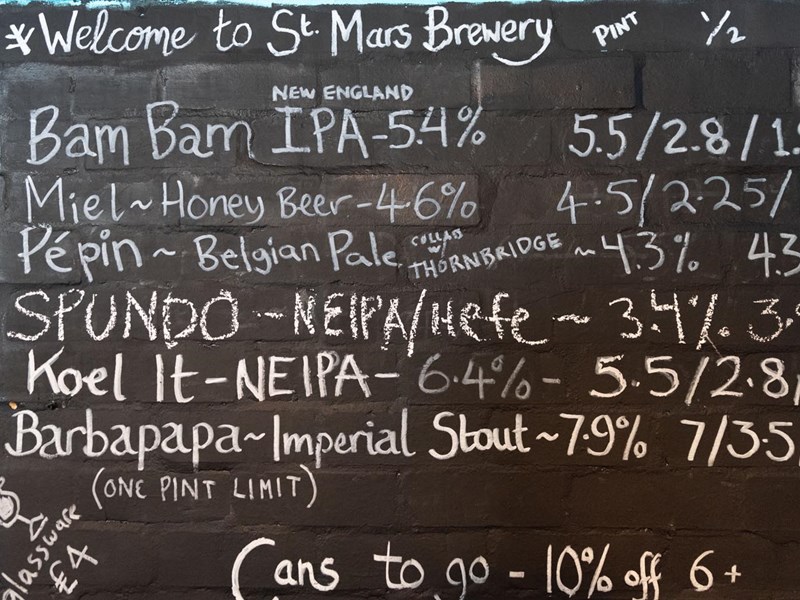 Welcome to St. Mars Brewery PINT 1/2
NEW ENGLAND
Bam Bam IPA-5.4% 5.5/2.8/1.
Miel~Honey Beer-4.6% 4.5/2.25/
Pépin~Belgian Pale COLLAB w/ THORNBRIDGE ~4.3% 4.3
SPUNDO~NEIPA/Hefe~3.4% 3.
Koel It-NEIPA-6.4%- 5.5/2.8/
Barbapapa~Imperial Stout~7.9% 7/3.5
(ONE PINT LIMIT)
glassware
£4
Cans to go - 10% off 6+